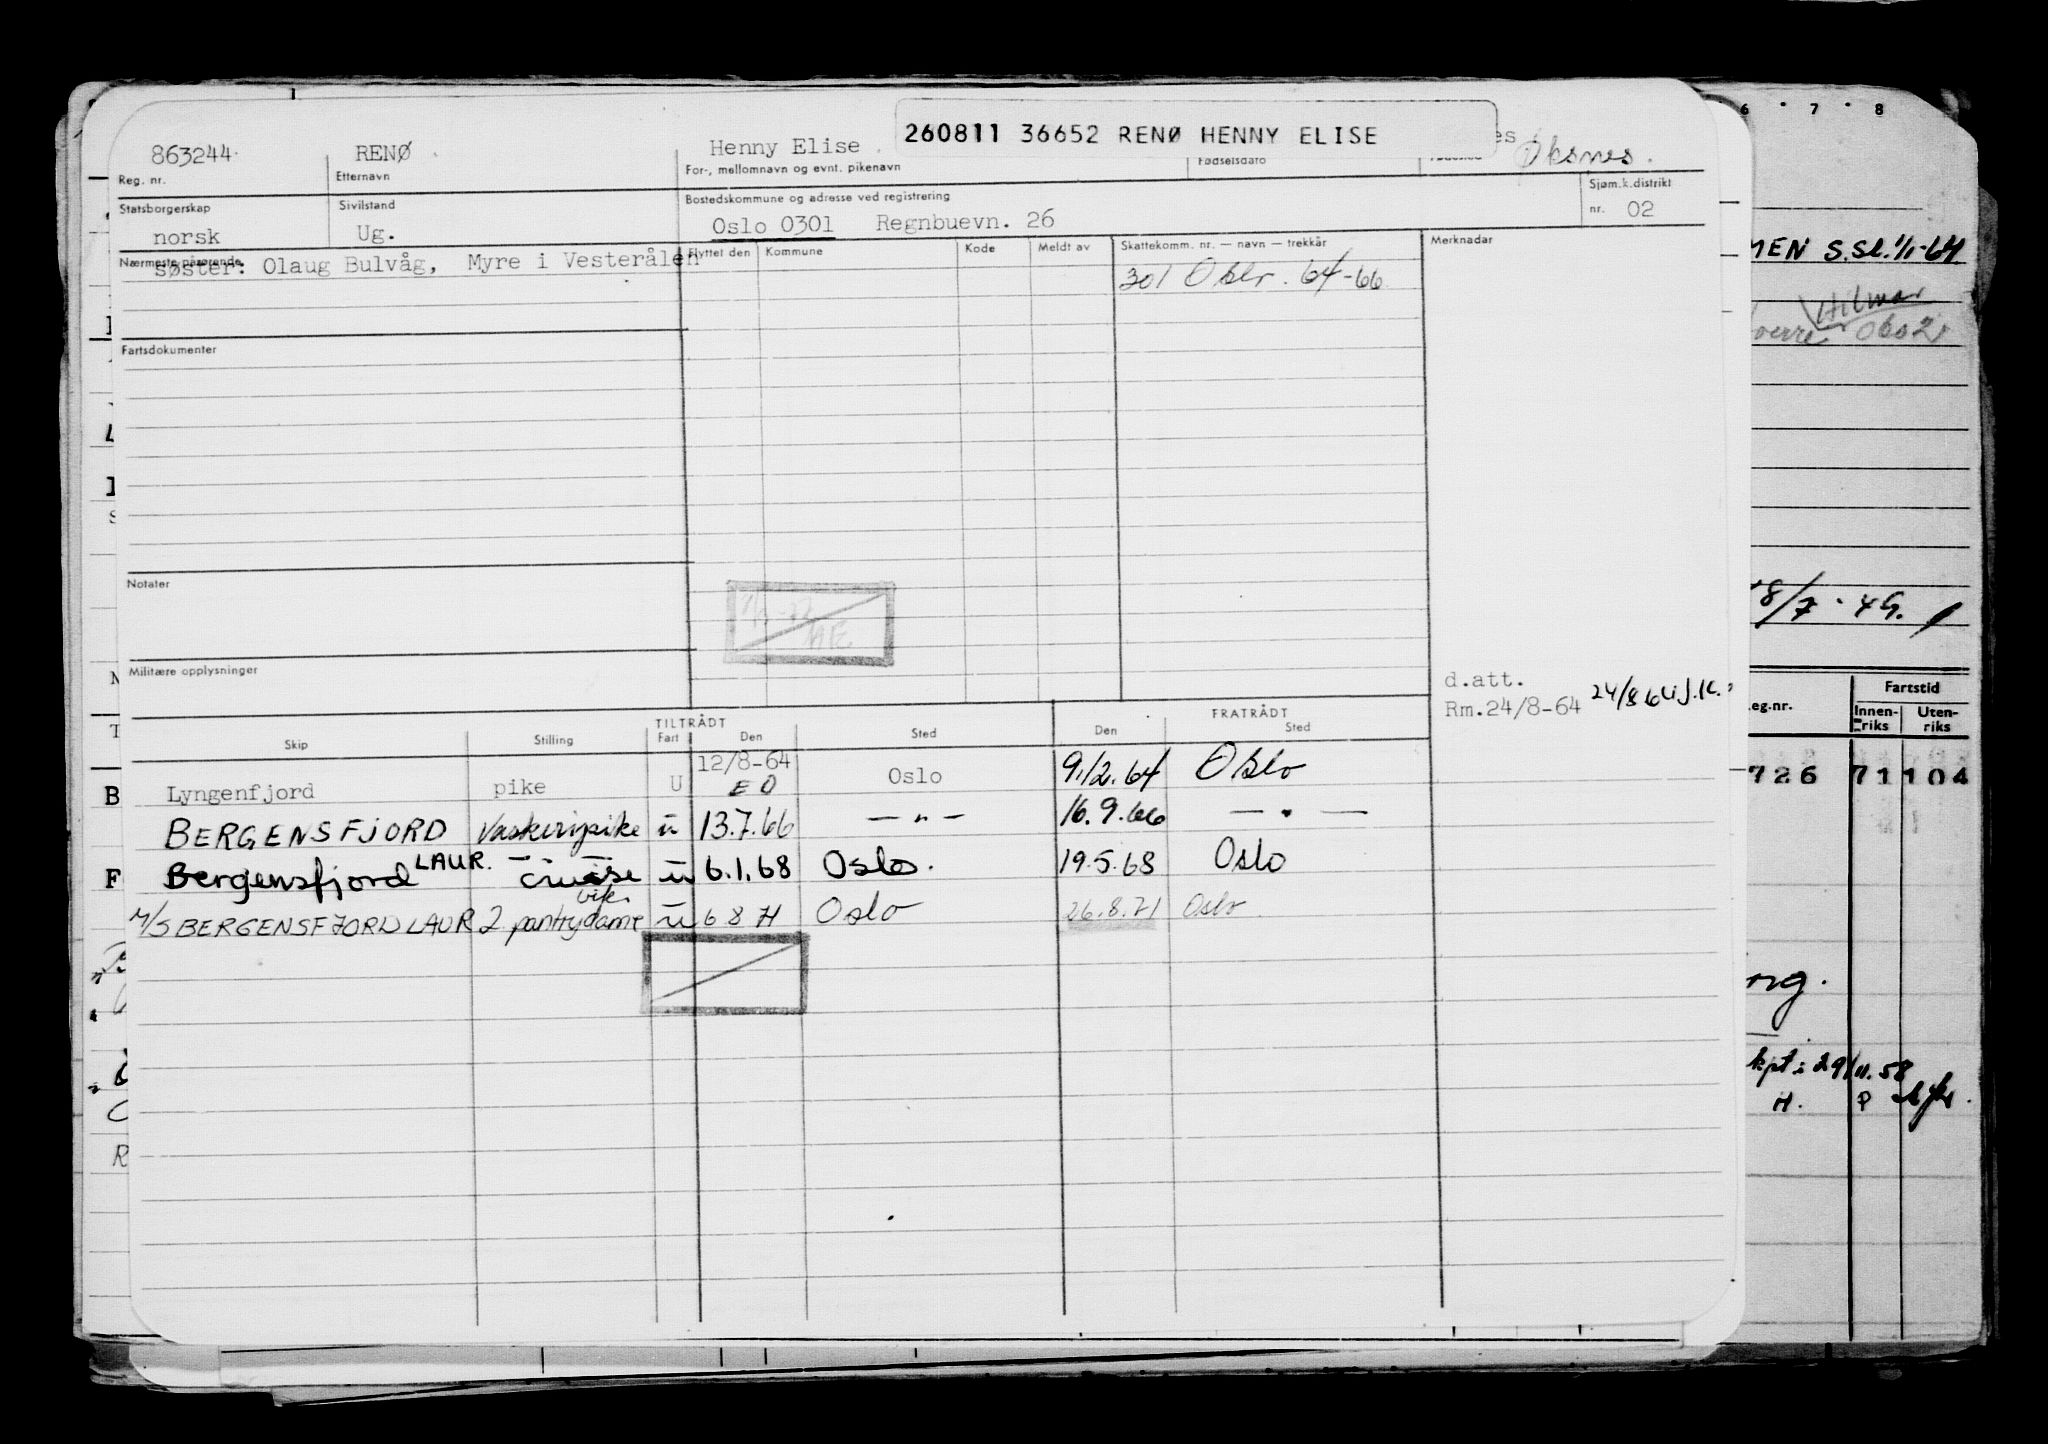 260811 36652 RENØ HENNY ELISE
863244 RENØ Henny Elise es Øksnes.
Reg. nr. Etternavn For-, mellomnavn og evnt. pikenavn Fødselsdato
Statsborgerskap Sivilstand Bostedskommune og adresse ved registrering Sjøm.k.distrikt
norsk Ug. Oslo 0301 Regnbuevn. 26 nr. 02
Nærmeste pårørende Flyttet den Kommune Kode Meldt av Skattekomm. nr. — navn — trekkår Merknadar
søster: Olaug Bulvåg, Myre i Vesterålen
301 Oslo. 64-66
Fartsdokumenter
Notater
Militære opplysninger
d.att.
Rm.24/8-64 24/8 64
TILTRÅDT FRATRÅDT
Skip Stilling Fart Den Sted Den Sted
Lyngenfjord pike U 12/8-64 EO Oslo 9.12.64 Oslo
BERGENSFJORD Vaskeripike u 13.7.66 — " — 16.9.66 — " —
Bergensfjord LAUR. cruise u 6.1.68 Oslo. 19.5.68 Oslo
M/S BERGENSFJORD LAUR 2 pantrydame vik. u 6 8 71 Oslo 26.8.71 Oslo
6 7 8
MEN S.Sl. 1/1-64
Hilmar
0602
18/7 - 49.
eg.nr. Fartstid
Innen-riks Uten-riks
726 71 104
org.
kpt i 29/11.58
H. P
B
F
R